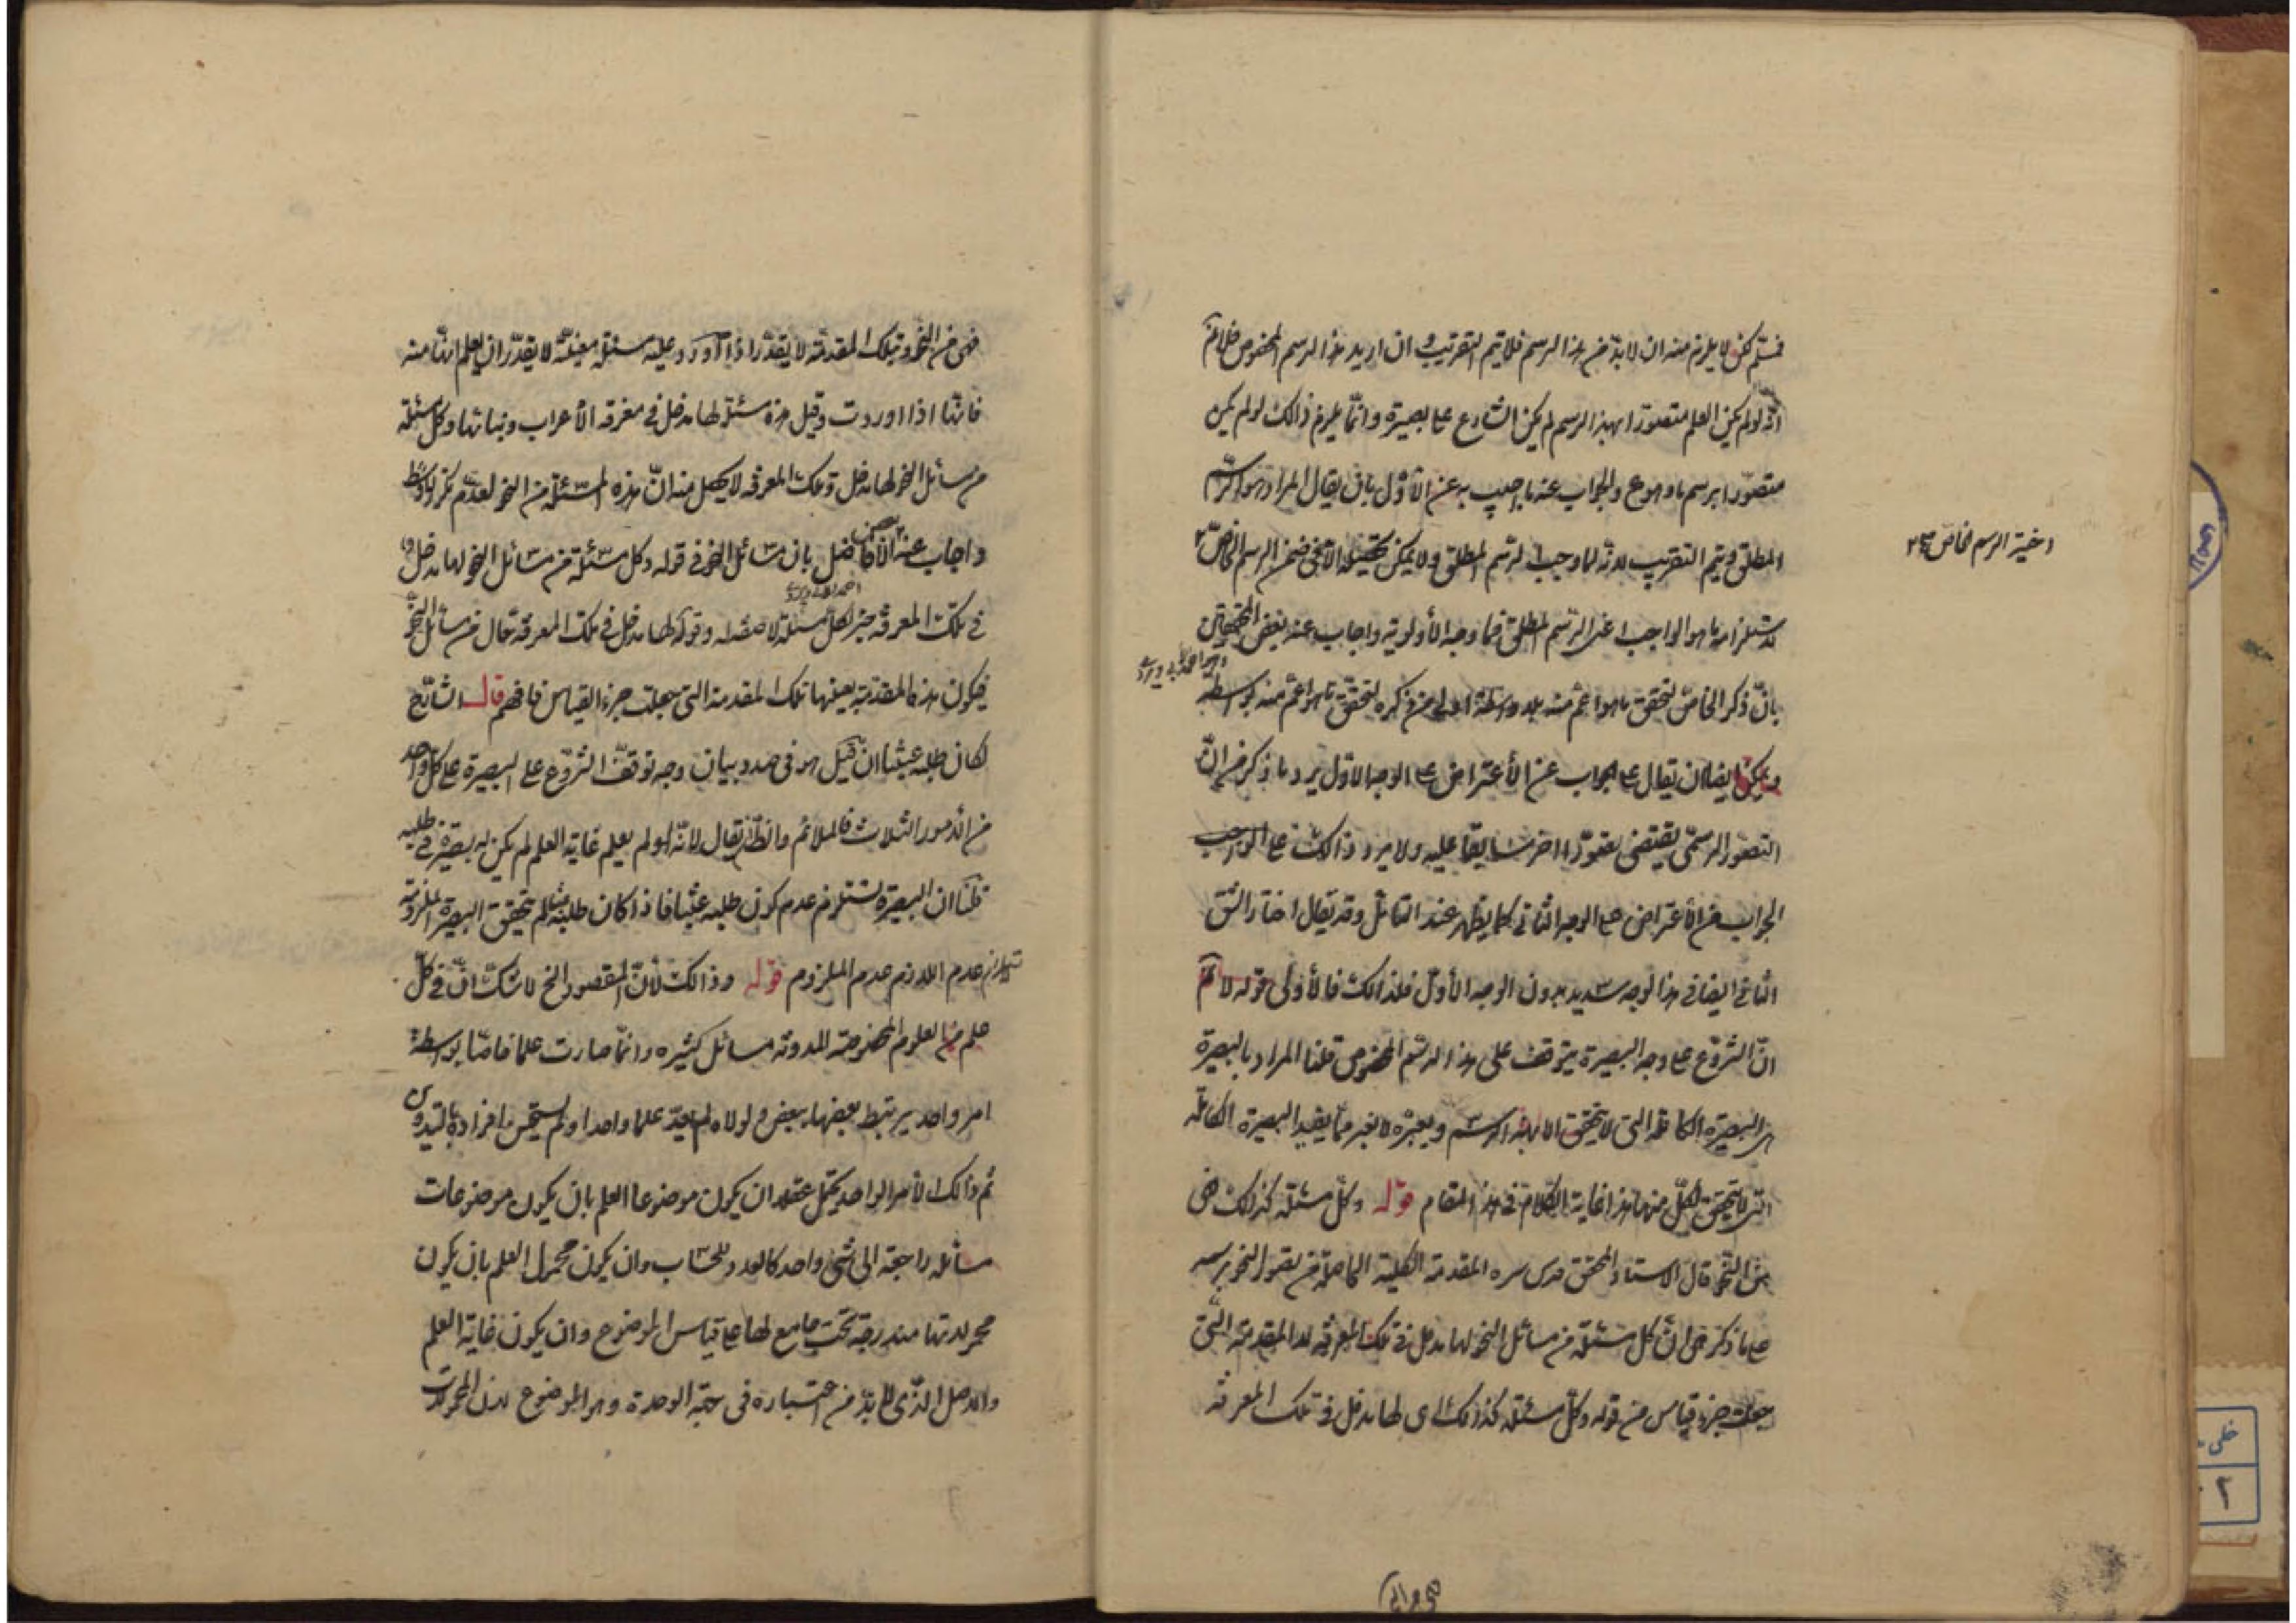 فمسلّم لكن لا يلزم منه ان لا بدّ من هذا الرسم فلا يتم التقريب و ان اريد هذا الرسم المخصوص فلانم
انّه لو لم يكن العلم متصورا بهذا الرسم لم يكن الشارع على بصيرة وانّما يلزم ذالك لو لم يكن
متصوّرا برسم ما وهو مع والجواب عنه ما اجيب به عن الاوّل بان يقال المراد هو الرسم
المطلق ويتم التقريب لانه لما وجب الرسم المطلق ولا يمكن تحققه الا فى ضمن الرسم الخاصّ
اختير الرسم الخاص صح
لاستلزامه ما هو الواجب اعنى الرسم المطلق فما وجه الأولوية واجاب عنه بعض المحققين
بانّ ذكر الخاصّ لتحقق ما هو اعم منه بلا واسطة اولى من ذكره لتحقق ما هو اعم منه بواسطة
ويمكن ايضا ان يقال على الجواب عن الأعتراض على الوجه الاوّل يرد ما ذكر من انّ
التصور الرسمى يقتضى تصوّرا اخر سابقا عليه ولا يرد ذالك على
الجواب عن الأعتراض على الوجه الثانى كما يظهر عند التامّل وقد يقال اختار الشق
الثانى ايضا فى هذا الوجه سديد بدون الوجه الأول فلذالك قال الأولى قوله لا نم
انّ الشروع على وجه البصيرة يتوقف على هذا الرسم المخصوص قلنا المراد بالبصيرة
هى البصيرة الكاملة التى لا يتحقق الا بهذا الرسم وبغيره لا بغير ما يفيد البصيرة الكاملة
التى لا يتحقق الكلّ منها هذا غاية الكلام فى هذا المقام قوله وكلّ مسئلة كذلك فهى
من النحو قال الاستاد المحقق قدس سره المقدمة الكلية الحاصلة من تصور النحو برسمه
على ما ذكر هى انّ كل مسئلة من مسائل النحو لها مدخل فى تلك المعرفة لا المقدمة التى
جعلت جزء قياس من قوله وكلّ مسئلة كذلك اى لها مدخل فى تلك المعرفة
فهى من النحو وبتلك المقدمة لا يقدر اذا اورد عليه مسئلة معيّنة لا يقدّر ان يعلم انّها منه
فانّها اذا اوردت وقيل هذه مسئلة لها مدخل فى معرفة الأعراب وبنائها وكل مسئلة
من مسائل النحو لها مدخل فى تلك المعرفة لا يحصل منه انّ هذه المسئلة من النحو لعدم تكرر الوسط
واجاب عنه الفاضل بان مسائل النحو فى قوله وكل مسئلة من مسائل النحو لها مدخل
فى تلك المعرفة خبر لكل مسئلة لا صفة له وقوله لها مدخل فى تلك المعرفة حال من مسائل النحو
فيكون هذه المقدمة بعينها تلك المقدمة التى جعلت جزء القياس فافهم قال الشارح
لكان طلبه عبثا ان قيل هو فى صدد بيان وجه توقف الشروع على البصيرة على كل واحد
من الأمور الثلاث فالملائم ان يقال لانّه لو لم يعلم غاية العلم لم يكن له بصيرة فى طلبه
قلنا ان البصيرة تستلزم عدم كون طلبه عبثا فاذا كان طلبه عبثا لم يتحقق البصيرة
عدم اللازم عدم الملزوم قوله وذالك لأنّ المقصود الخ لا شك انّ فى كلّ
علم من العلوم المخصوصة المدونة مسائل كثيره وانّما صارت علما خاصّا بواسطة
امر واحد يرتبط بعضها ببعض ولولاه لم يعدّ علما واحدا ولم يستحسن افراده بالتدوين
ثم ذالك الأمر الواحد يحتمل عقلا ان يكون موضوعا العلم بان يكون موضوعات
مسائله راجعة الى شئ واحد كالعدد للحساب وان يكون محمول العلم بان يكون
محمولاتها مندرجة تحت جامع لها على قياس الموضوع وان يكون غاية العلم
والاصل الذّى لا بدّ من اعتباره فى جهة الوحدة وهو الموضوع لان المحمولات